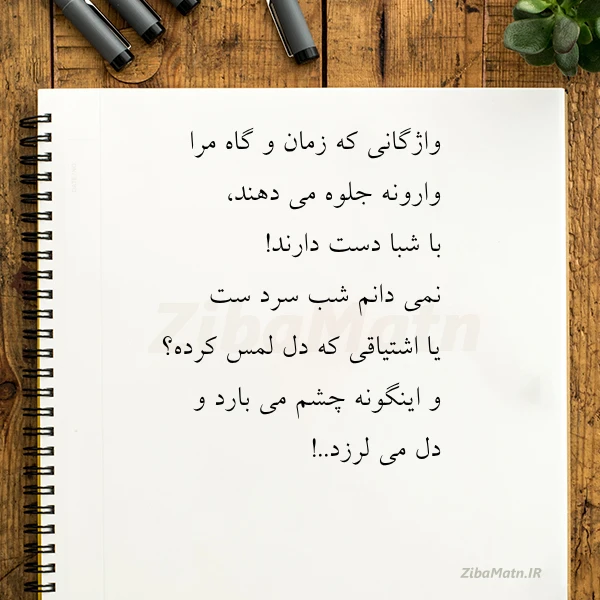 واژگانی که زمان و گاه مرا
وارونه جلوه می دهند،
با شبا دست دارند!
نمی دانم شب سرد ست
یا اشتیاقی که دل لمس کرده؟
و اینگونه چشم می بارد و
دل می لرزد..!
ZibaMatn
ZibaMatn.IR